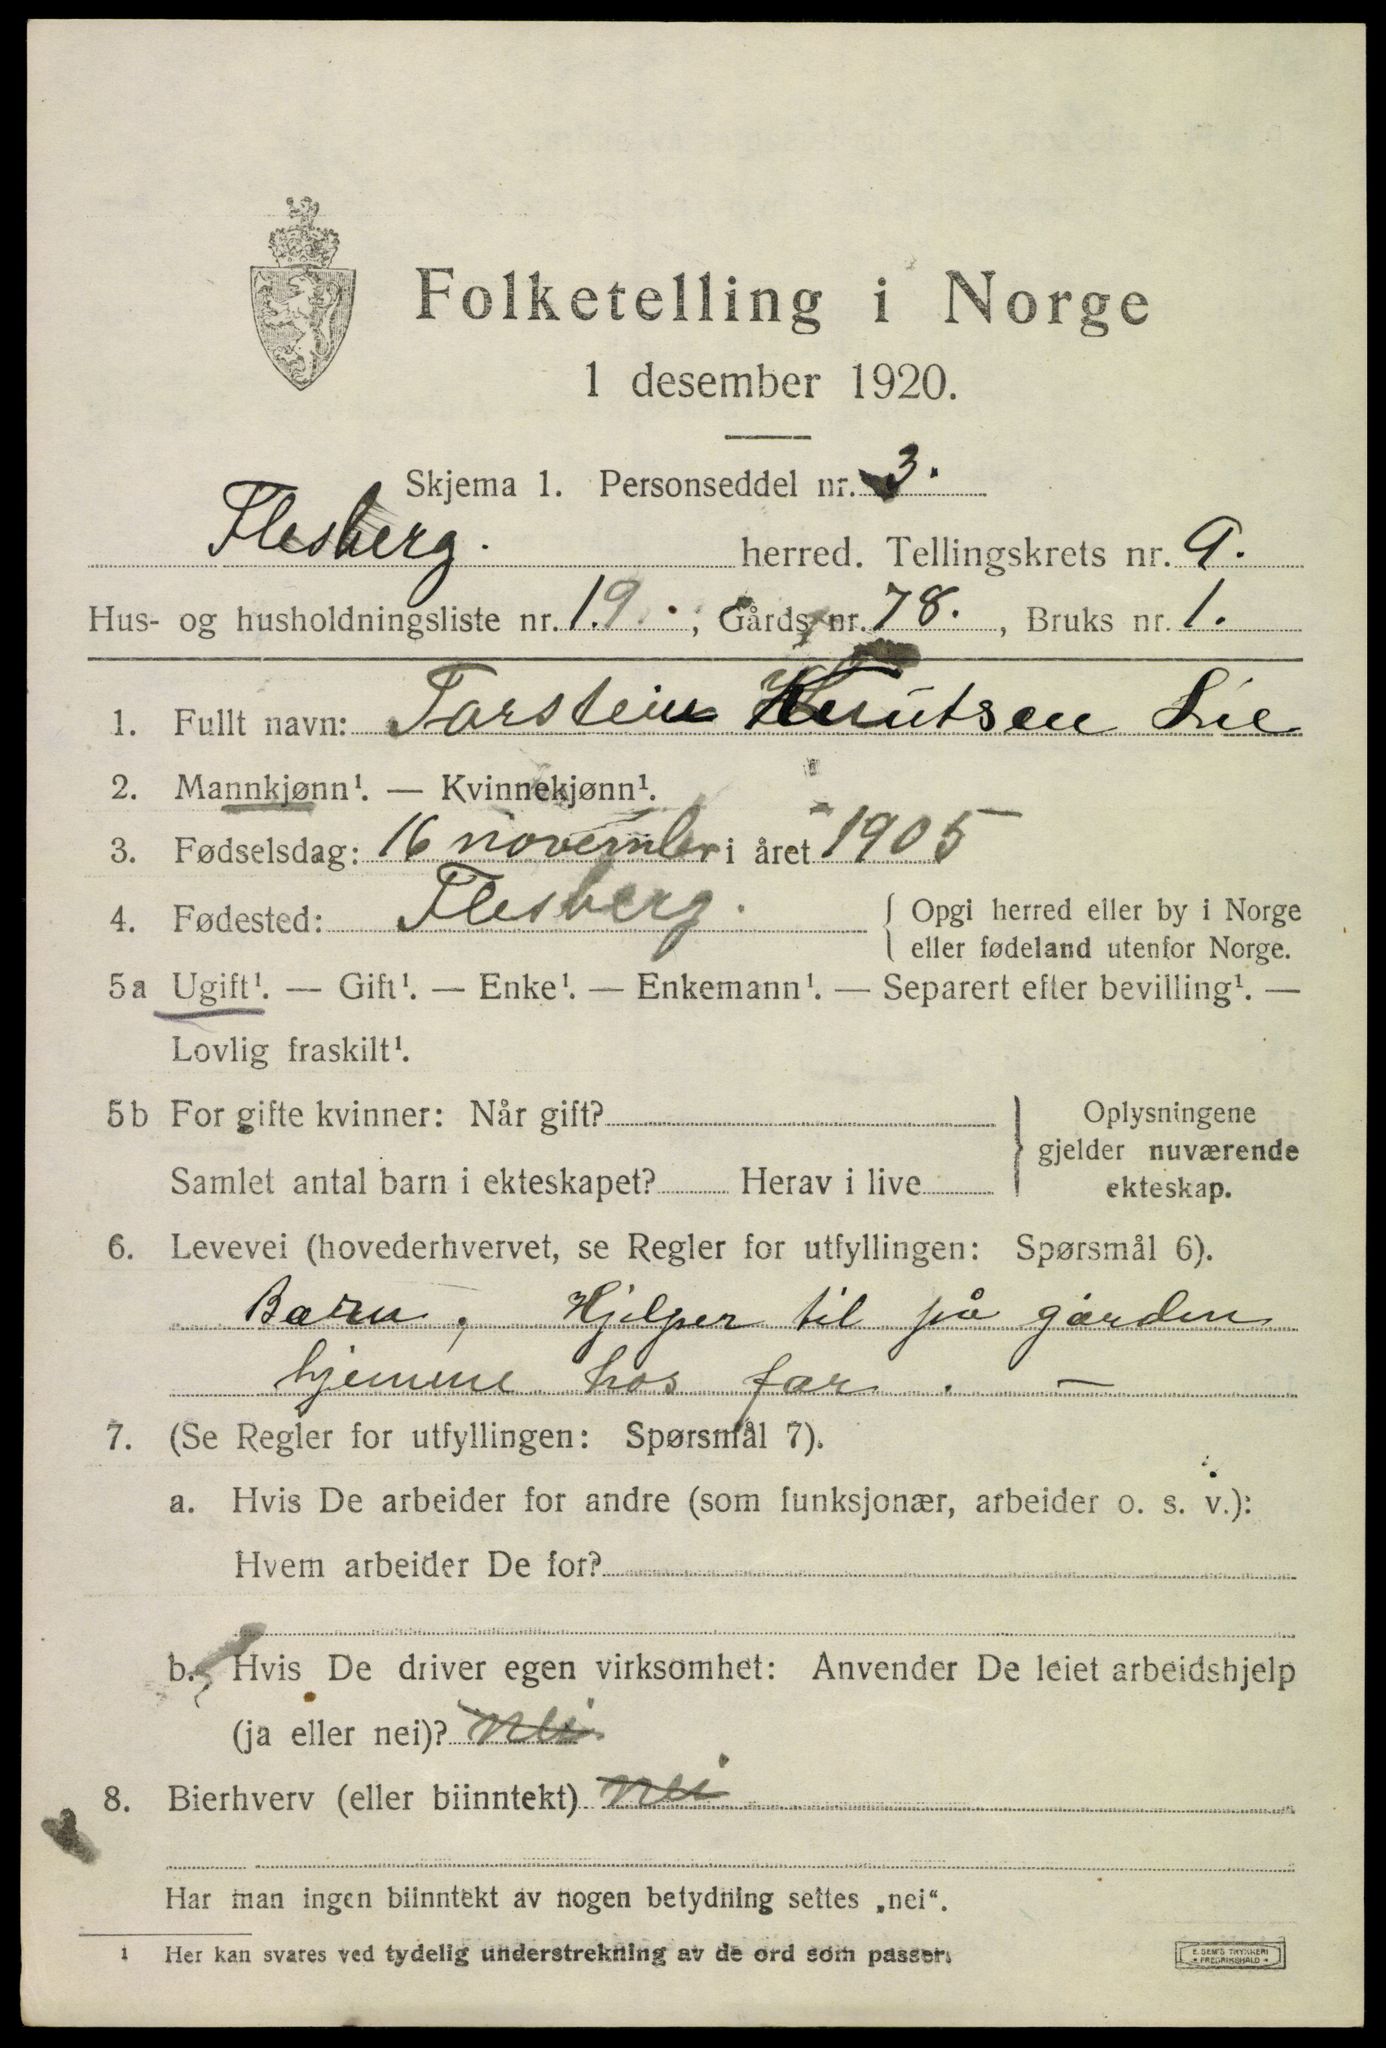 Folketelling i Norge
1 desember 1920.
Skjema 1. Personseddel nr. 3.
Flesberg. herred. Tellingskrets nr. 9.
Hus- og husholdningsliste nr. 19. , Gårds nr. 78. , Bruks nr. 1.
1. Fullt navn: Torstein Knutsen Lie
2. Mannkjønn¹. — Kvinnekjønn¹.
3. Fødselsdag: 16 november i året 1905
4. Fødested: Flesberg. { Opgi herred eller by i Norge
eller fødeland utenfor Norge.
5a Ugift¹. — Gift¹. — Enke¹. — Enkemann¹. — Separert efter bevilling¹. —
Lovlig fraskilt¹.
5b For gifte kvinner: Når gift? } Oplysningene
gjelder nuværende
Samlet antal barn i ekteskapet? Herav i live ekteskap.
6. Levevei (hovederhvervet, se Regler for utfyllingen: Spørsmål 6).
Barn, Hjelper til på garden
hjemme hos far. —
7. (Se Regler for utfyllingen: Spørsmål 7).
a. Hvis De arbeider for andre (som funksjonær, arbeider o. s. v.):
Hvem arbeider De for?
b. Hvis De driver egen virksomhet: Anvender De leiet arbeidshjelp
(ja eller nei)? nei
8. Bierhverv (eller biinntekt) nei
Har man ingen biinntekt av nogen betydning settes „nei“.
¹ Her kan svares ved tydelig understrekning av de ord som passer.
E. SEM'S TRYKKERI
FREDRIKSHALD